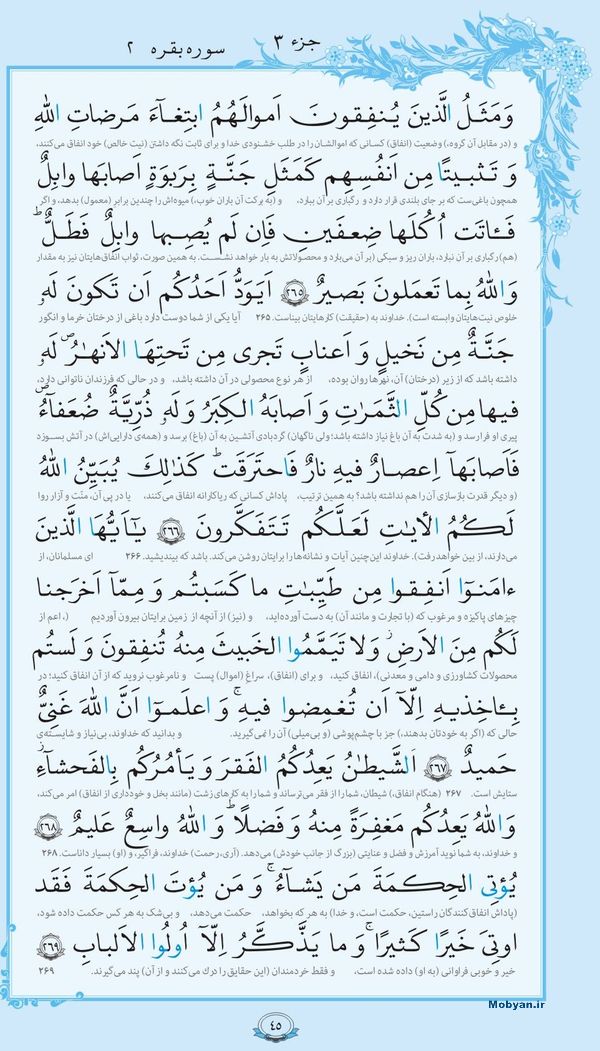 جزء ۳
سوره بقره ۲
وَمَثَلُ الَّذينَ يُنفِقونَ اَموالَهُمُ ابتِغآءَ مَرضاتِ اللهِ
و (در مقابل آن گروه،) وضعیت (انفاق) کسانی که اموالشان را در طلب خشنودی خدا و برای ثابت نگه داشتن (نیت خالص) خود انفاق می‌کنند،
وَ تَثبيتًا مِن اَنفُسِهِم كَمَثَلِ جَنَّةٍ بِرَبوَةٍ اَصابَها وابِلٌ
همچون باغی‌ست که بر جای بلندی قرار دارد و رگباری بر آن ببارد، و (به برکت آن باران خوب،) میوه‌اش را چندین برابر (معمول) بدهد، و اگر
فَـٔاتَت اُكُلَها ضِعفَينِ فَاِن لَم يُصِبها وابِلٌ فَطَلٌّ ۗ
(هم) رگباری بر آن نبارد، باران ریز و سبکی (بر آن می‌بارد و محصولاتش به بار خواهد نشست. به همین صورت، ثواب انفاق‌هایتان نیز به مقدار
وَاللهُ بِما تَعمَلونَ بَصيرٌ ﴿٢٦٥﴾ اَيَوَدُّ اَحَدُكُم اَن تَكونَ لَهو
خلوص نیت‌هایتان وابسته است). خداوند به (حقیقت) کارهایتان بیناست. ۲۶۵ آیا یکی از شما دوست دارد باغی از درختان خرما و انگور
جَنَّةٌ مِن نَخيلٍ وَ اَعنابٍ تَجری مِن تَحتِهَا الاَنهٰرُ لَهو
داشته باشد که از زیر (درختان) آن، نهرها روان بوده، از هر نوع محصولی در آن داشته باشد، و در حالی که فرزندان ناتوانی دارد،
فيها مِن كُلِّ الثَّمَرٰتِ وَ اَصابَهُ الكِبَرُ وَ لَهو ذُرِّيَّةٌ ضُعَفآءُ
پیری او فرا رسد و (به شدت به آن باغ نیاز داشته باشد؛ ولی ناگهان) گردبادی آتشین به آن (باغ) برسد و (همه‌ی دارایی‌اش) در آتش بسوزد
فَاَصابَهآ اِعصارٌ فيهِ نارٌ فَاحتَرَقَت ۗ كَذٰلِكَ يُبَيِّنُ اللهُ
(و دیگر قدرت بازسازی آن را هم نداشته باشد؟ به همین ترتیب، پاداش کسانی که ریاکارانه انفاق می‌کنند، یا در پی آن، منّت و آزار روا
لَكُمُ الأياتِ لَعَلَّكُم تَتَفَكَّرونَ ﴿٢٦٦﴾ يٰٓاَيُّهَا الَّذينَ
می‌دارند، از بین خواهد رفت). خداوند این‌چنین آیات و نشانه‌ها را برایتان روشن می‌کند. باشد که بیندیشید. ۲۶۶ ای مسلمانان، از
ءامَنوٓا اَنفِقوا مِن طَيِّبٰتِ ما كَسَبتُم وَ مِمّآ اَخرَجنا
چیزهای پاکیزه و مرغوب که (با تجارت و مانند آن) به دست آورده‌اید، و (نیز) از آنچه از زمین برایتان بیرون آوردیم (، اعم از
لَكُم مِنَ الاَرضِ ۖ وَلا تَيَمَّمُوا الخَبيثَ مِنهُ تُنفِقونَ وَ لَستُم
محصولات کشاورزی و دامی و معدنی)، انفاق کنید، و برای (انفاق)، سراغ (اموال) پست و نامرغوب نروید که از آن انفاق کنید؛ در
بِـٔاخِذيهِ اِلّآ اَن تُغمِضوا فيهِ ۚ وَ اعلَموٓا اَنَّ اللهَ غَنِیٌّ
حالی که (اگر به خودتان بدهند،) جز با چشم‌پوشی (و بی‌میلی) آن را نمی‌گیرید. و بدانید که خداوند، بی‌نیاز و شایسته‌ی
حَميدٌ ﴿٢٦٧﴾ اَلشَّيطٰنُ يَعِدُكُمُ الفَقرَ وَ يَأمُرُكُم بِالفَحشآءِ ۖ
ستایش است. ۲۶۷ (هنگام انفاق،) شیطان، شما را از فقر می‌ترساند و شما را به کارهای زشت (مانند بخل و خودداری از انفاق) امر می‌کند،
وَاللهُ يَعِدُكُم مَغفِرَةً مِنهُ وَ فَضلًا ۗ وَ اللهُ واسِعٌ عَليمٌ ﴿٢٦٨﴾
و خداوند، به شما نوید آمرزش و فضل و عنایتی (بزرگ از جانب خودش) می‌دهد. (آری، رحمت) خداوند، فراگیر، و (او) بسیار داناست. ۲۶۸
يُؤتِی الحِكمَةَ مَن يَشآءُ ۚ وَ مَن يُؤتَ الحِكمَةَ فَقَد
(پاداش انفاق‌کنندگان راستین، حکمت است، و خدا) به هر که بخواهد، حکمت می‌دهد، و بی‌شک به هر کس حکمت داده شود،
اوتِیَ خَيرًا كَثيرًا ۗ وَ ما يَذَّكَّرُ اِلّآ اُولُوا الاَلبابِ ﴿٢٦٩﴾
خیر و خوبی فراوانی (به او) داده شده است، و فقط خردمندان (این حقایق را درک می‌کنند و از آن) پند می‌گیرند. ۲۶۹
Mobyan.ir
٤٥